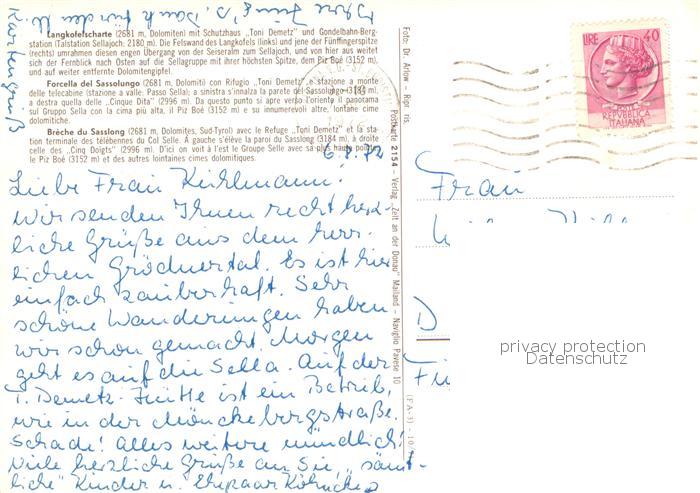 Ihre Jung's. Dank für den U.
Kartengruß
Langkofelscharte (2681 m, Dolomiten) mit Schutzhaus „Toni Demetz" und Gondelbahn-Berg-
station (Talstation Sellajoch: 2180 m). Die Felswand des Langkofels (links) und jene der Fünffingerspitze
(rechts) umrahmen diesen engen Übergang von der Seiseralm zum Sellajoch, und von hier aus weitet
sich der Fernblick nach Osten auf die Sellagruppe mit ihrer höchsten Spitze, dem Piz Boè (3152 m),
und auf weiter entfernte Dolomitengipfel.
Forcella del Sassolungo (2681 m, Dolomiti) con Rifugio „Toni Demetz" e stazione a monte
delle telecabine (stazione a valle: Passo Sella); a sinistra s'innalza la parete del Sassolungo (3184 m),
a destra quella delle „Cinque Dita" (2996 m). Da questo punto si apre verso l'oriente il panorama
sul Gruppo Sella con la cima più alta, il Piz Boè (3152 m) e su innumerevoli altre, lontane cime
dolomitiche.
Brèche du Sasslong (2681 m, Dolomites, Sud-Tyrol) avec le Refuge „Toni Demetz" et la sta-
tion terminale des télébennes du Col Selle. A gauche s'élève la paroi du Sasslong (3184 m), à droite
celle des „Cinq Doigts" (2996 m). D'ici on voit à l'est le Groupe Selle avec sa plus haute pointe,
le Piz Boè (3152 m) et des autres lointaines cimes dolomitiques.
6.8.72
Liebe Frau Kuhlmann!
Wir senden Ihnen recht herz-
liche Grüße aus dem herr-
lichen Grödnertal. Es ist hier
einfach zauberhaft. Sehr
schöne Wanderungen haben
wir schon gemacht. Morgen
geht es auf die Sella. Auf der
T. Demetz-Hütte ist ein Betrieb,
wie in der Mönckebergstraße.
Schade! Alles weitere mündlich!
Viele herzliche Grüße an Sie, „sämt-
liche" Kinder u. Ehepaar
Foto: Dr. Arlow - Ripr. ris.
Postkarte 2154 - Verlag „Zeit an der Donau" Mailand - Naviglio Pavese 10
(FA-3) - 10.
LIRE 40
REPVBBLICA
ITALIANA
Frau
D
privacy protection
Datenschutz